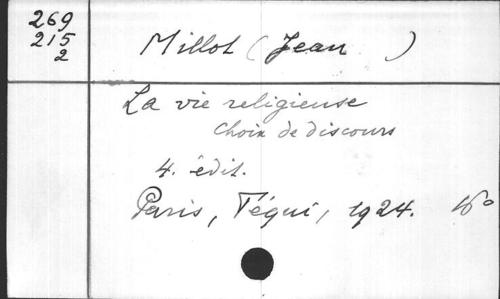 269
215
2
Millot (Jean )
La vie religieuse
Choix de discours
4. édit.
Paris, Téqui, 1924. 16°